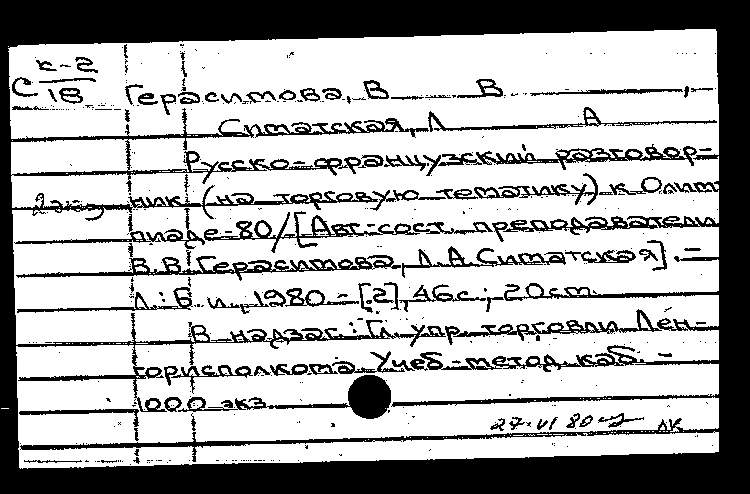 С к-2/18
Герасимова, В В ,
Симатская, Л А
Русско-французский разговор-
2 экз ник (на торговую тематику) к Олим
пиаде-80/[Авт.-сост. преподаватели
В.В. Герасимова, Л.А. Симатская]. –
Л.: Б. и., 1980 – [2], 46с.; 20см.
В надзаг.: Гл. упр. торговли Лен-
горисполкома. Учеб.-метод. каб. –
1000 экз.
27.VI 80 ЛК